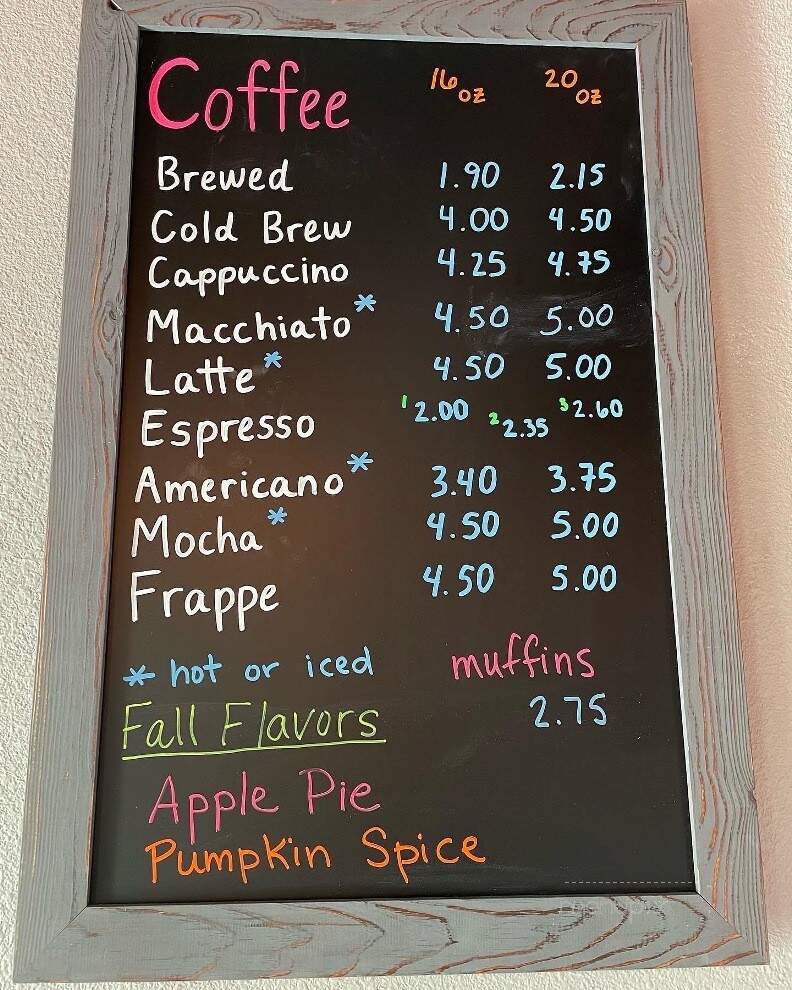 Coffee 16 oz 20 oz
Brewed 1.90 2.15
Cold Brew 4.00 4.50
Cappuccino 4.25 4.75
Macchiato* 4.50 5.00
Latte* 4.50 5.00
Espresso 1 2.00 2 2.35 3 2.60
Americano* 3.40 3.75
Mocha* 4.50 5.00
Frappe 4.50 5.00
* hot or iced muffins
Fall Flavors 2.75
Apple Pie
Pumpkin Spice